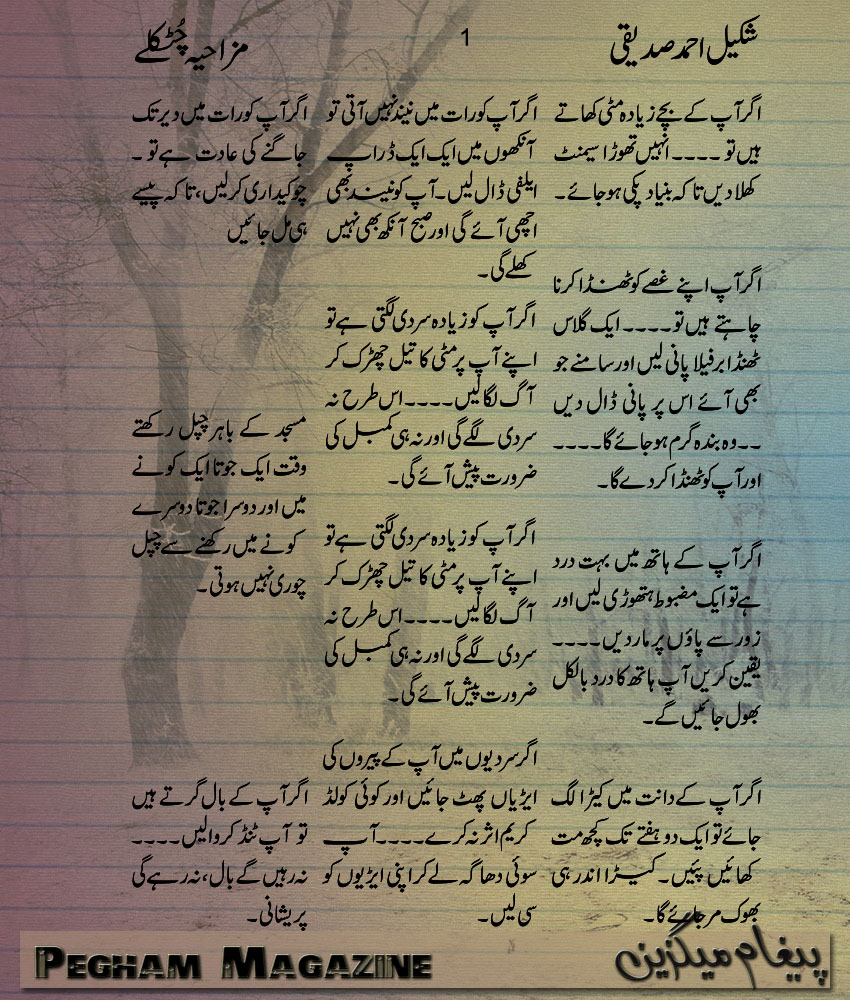 شکیل احمد صدیقی
1
مزاحیہ چُٹکلے
اگر آپ کے بچے زیادہ مٹی کھاتے
ہیں تو ۔۔۔۔ انہیں تھوڑا سیمنٹ
کھلا دیں تاکہ بنیاد پکی ہو جائے۔
اگر آپ اپنے غصے کو ٹھنڈا کرنا
چاہتے ہیں تو۔۔۔۔ ایک گلاس
ٹھنڈا برفیلا پانی لیں اور سامنے جو
بھی آئے اس پر پانی ڈال دیں
۔۔وہ بندہ گرم ہو جائے گا۔۔۔۔
اور آپ کو ٹھنڈا کر دے گا۔
اگر آپ کے ہاتھ میں بہت درد
ہے تو ایک مضبوط ہتھوڑی لیں اور
زور سے پاؤں پر مار دیں۔۔۔۔
یقین کریں آپ ہاتھ کا درد بالکل
بھول جائیں گے۔
اگر آپ کے دانت میں کیڑا لگ
جائے تو ایک دو ہفتے تک کچھ مت
کھائیں پئیں۔ کیڑا اندر ہی
بھوک مر جائے گا۔
اگر آپ کو رات میں نیند نہیں آتی تو
آنکھوں میں ایک ایک ڈراپ
ایلفی ڈال لیں۔ آپ کو نیند بھی
اچھی آئے گی اور صبح آنکھ بھی نہیں
کھلے گی۔
اگر آپ کو زیادہ سردی لگتی ہے تو
اپنے آپ پر مٹی کا تیل چھڑک کر
آگ لگا لیں۔۔۔۔اس طرح نہ
سردی لگے گی اور نہ ہی کمبل کی
ضرورت پیش آئے گی۔
اگر آپ کو زیادہ سردی لگتی ہے تو
اپنے آپ پر مٹی کا تیل چھڑک کر
آگ لگا لیں۔۔۔۔اس طرح نہ
سردی لگے گی اور نہ ہی کمبل کی
ضرورت پیش آئے گی۔
اگر سردیوں میں آپ کے پیروں کی
ایڑیاں پھٹ جائیں اور کوئی کولڈ
کریم اثر نہ کرے۔۔۔۔آپ
سوئی دھاگہ لے کر اپنی ایڑیوں کو
سی لیں۔
اگر آپ کو رات میں دیر تک
جاگنے کی عادت ہے تو ۔
چوکیداری کر لیں، تاکہ پیسے
ہی مل جائیں
مسجد کے باہر چپل رکھتے
وقت ایک جوتا ایک کونے
میں اور دوسرا جوتا دوسرے
کونے میں رکھنے سے چپل
چوری نہیں ہوتی۔
اگر آپ کے بال گرتے ہیں
تو آپ ٹنڈ کروا لیں۔۔۔۔
نہ رہیں گے بال، نہ رہے گی
پریشانی۔
PEGHAM MAGAZINE
پیغام میگزین